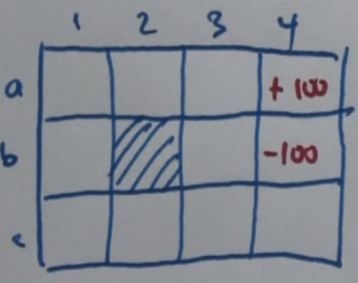 1 2 3 4
a +100
b -100
c